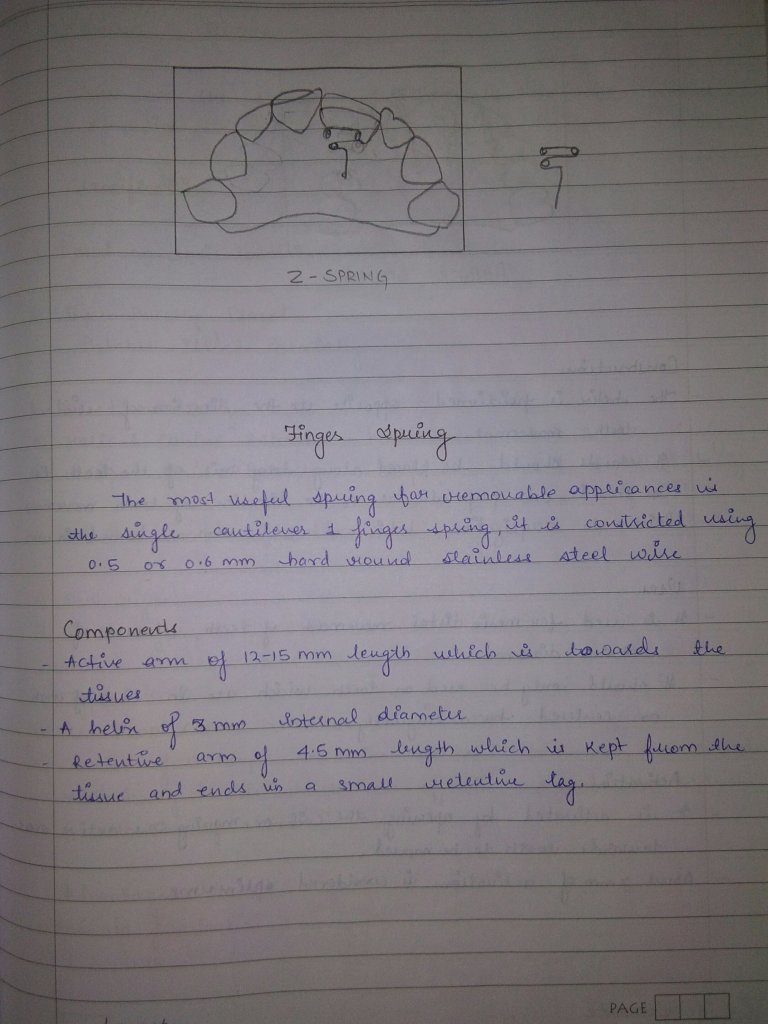 Z - SPRING
Finges Spring
The most useful spring for removable appliances is
the single cautilever 1 finges spring, it is constricted using
0.5 or 0.6 mm hard round stainless steel wire
Components
- Active arm of 12-15 mm length which is towards the
tissues
- A helix of 3 mm internal diameter
- Retentive arm of 4.5 mm length which is kept from the
tissue and ends in a small retentive tag.
PAGE